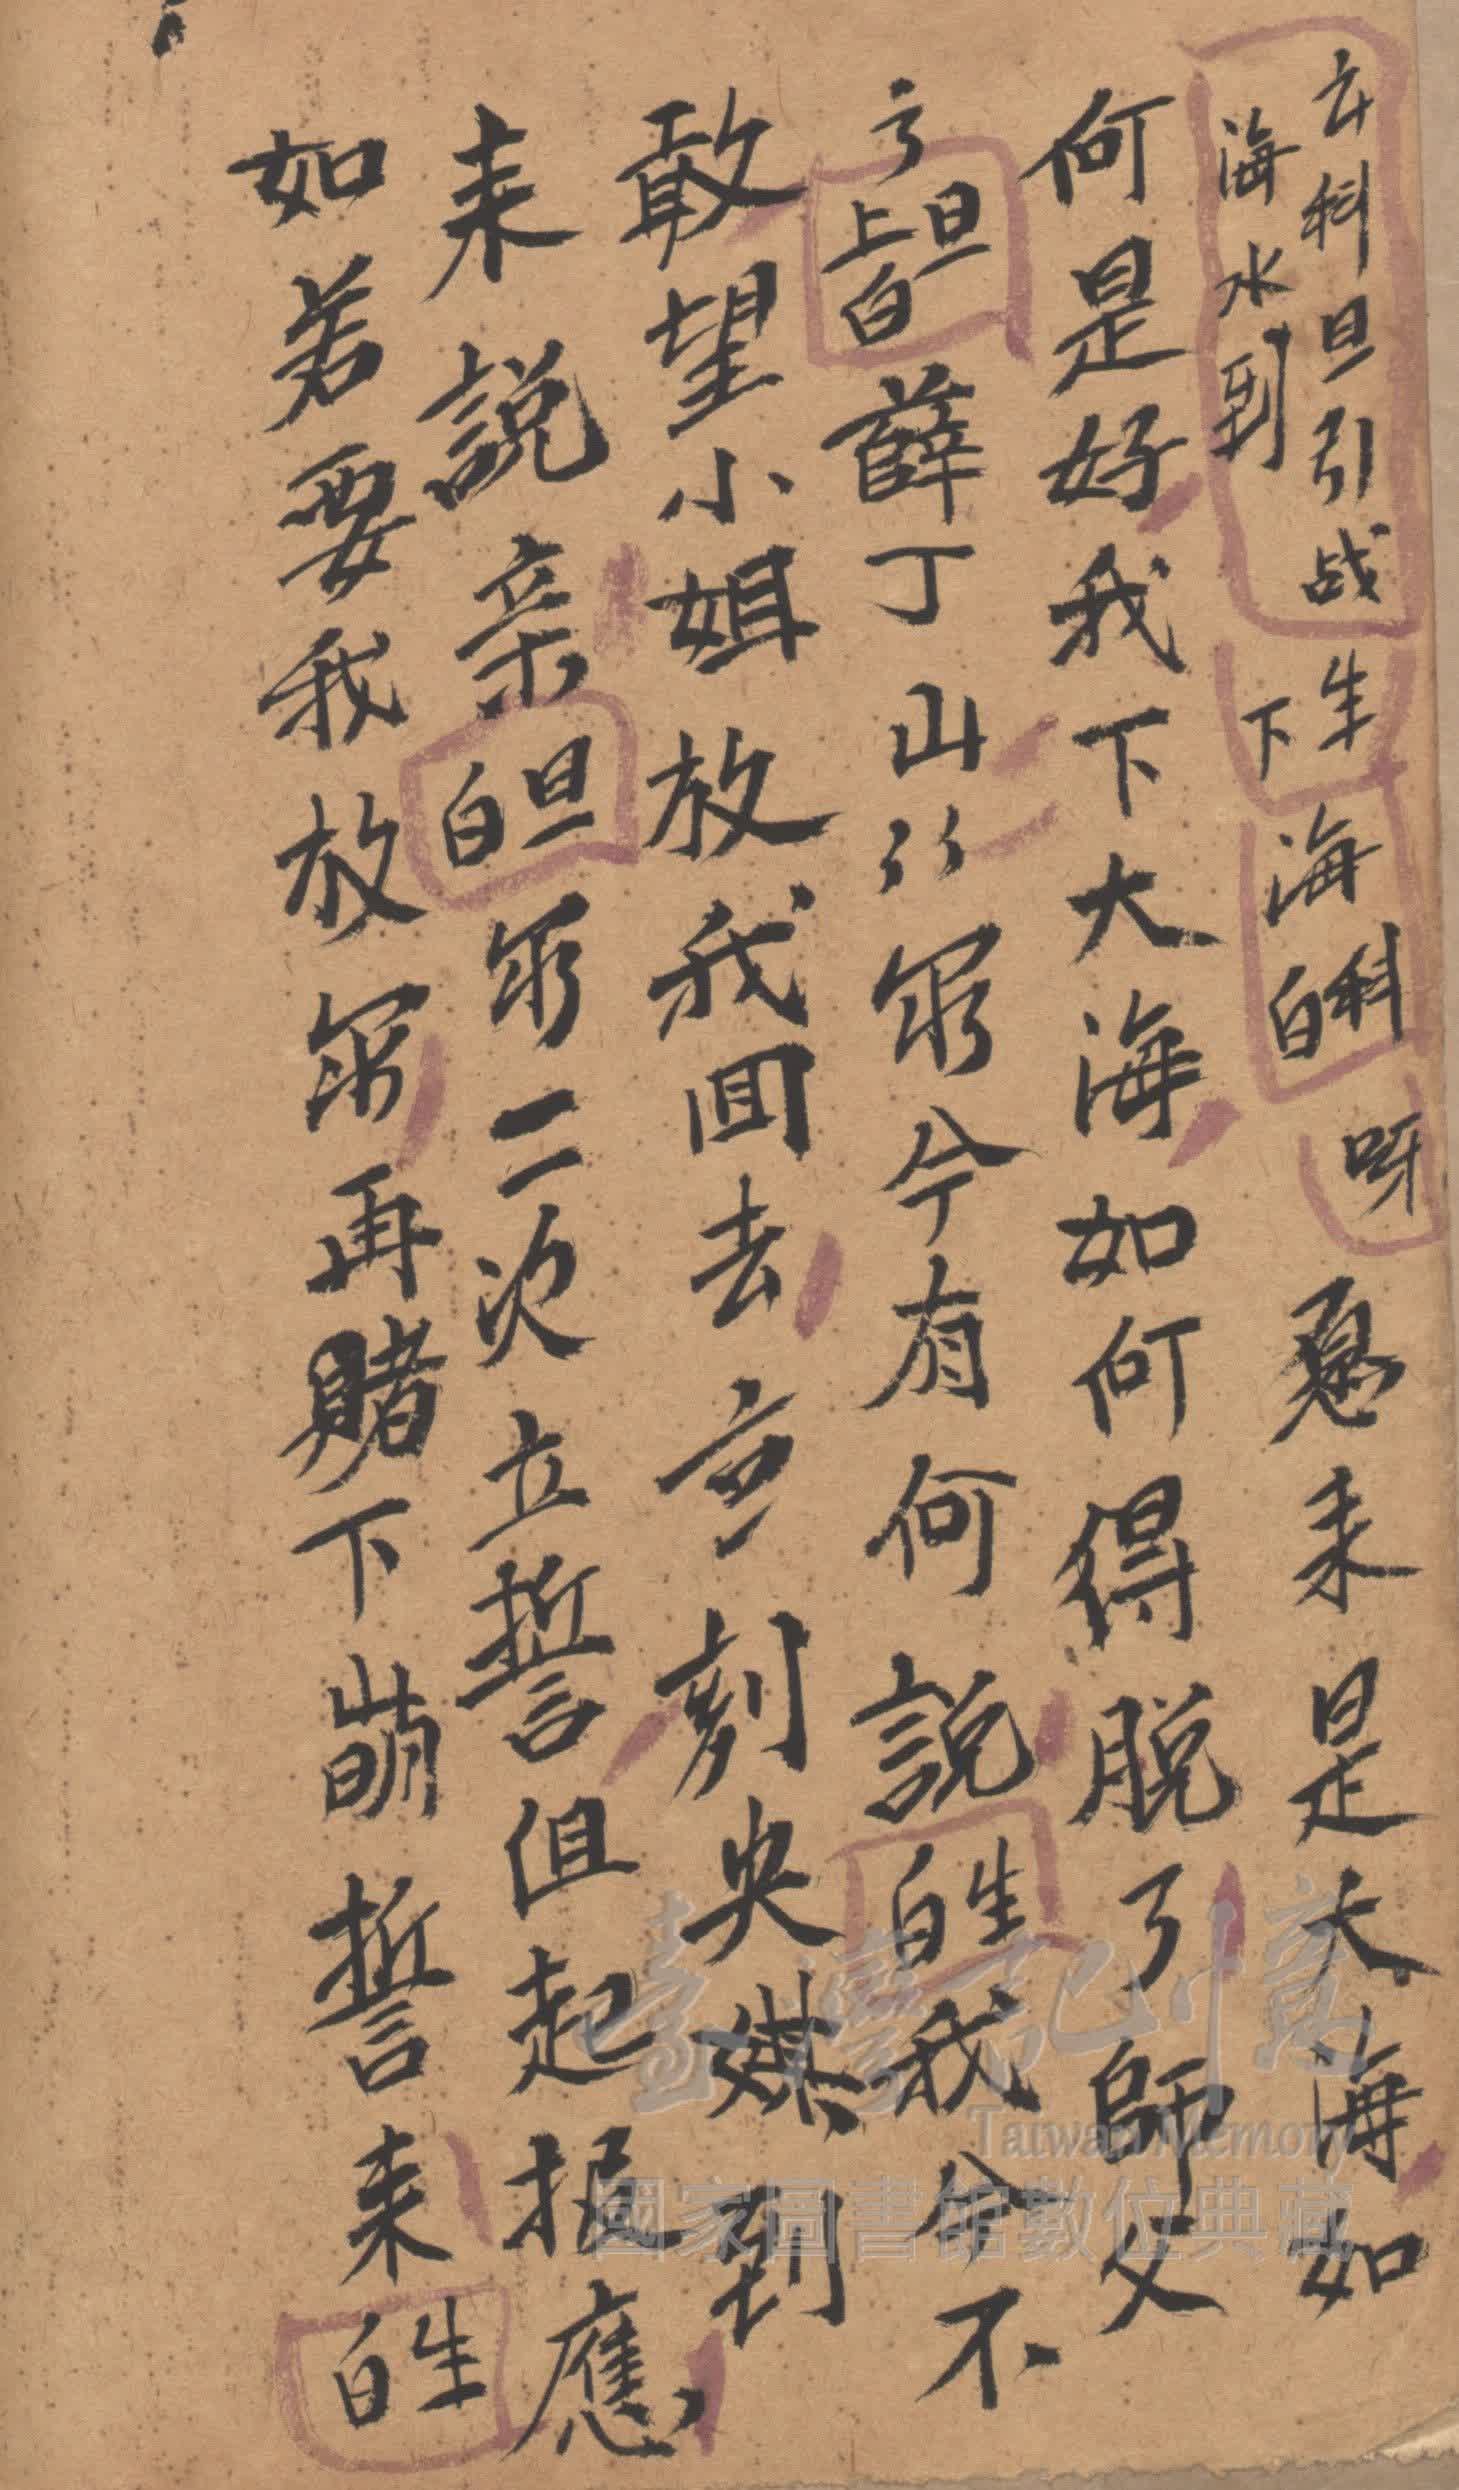 云科旦引战 生 海科 呀 原来是大海如
海水到 下 白
何是好我下大海如何得脱了師父
旦上白 薛丁山 今有何説 生白 我今不
敢望小姐放我回去立刻央媒到
来説亲 旦白 二次立誓但起报應
如若要我放 再賭下萌誓来 生白
臺灣記憶
Taiwan Memory
國家圖書館數位典藏